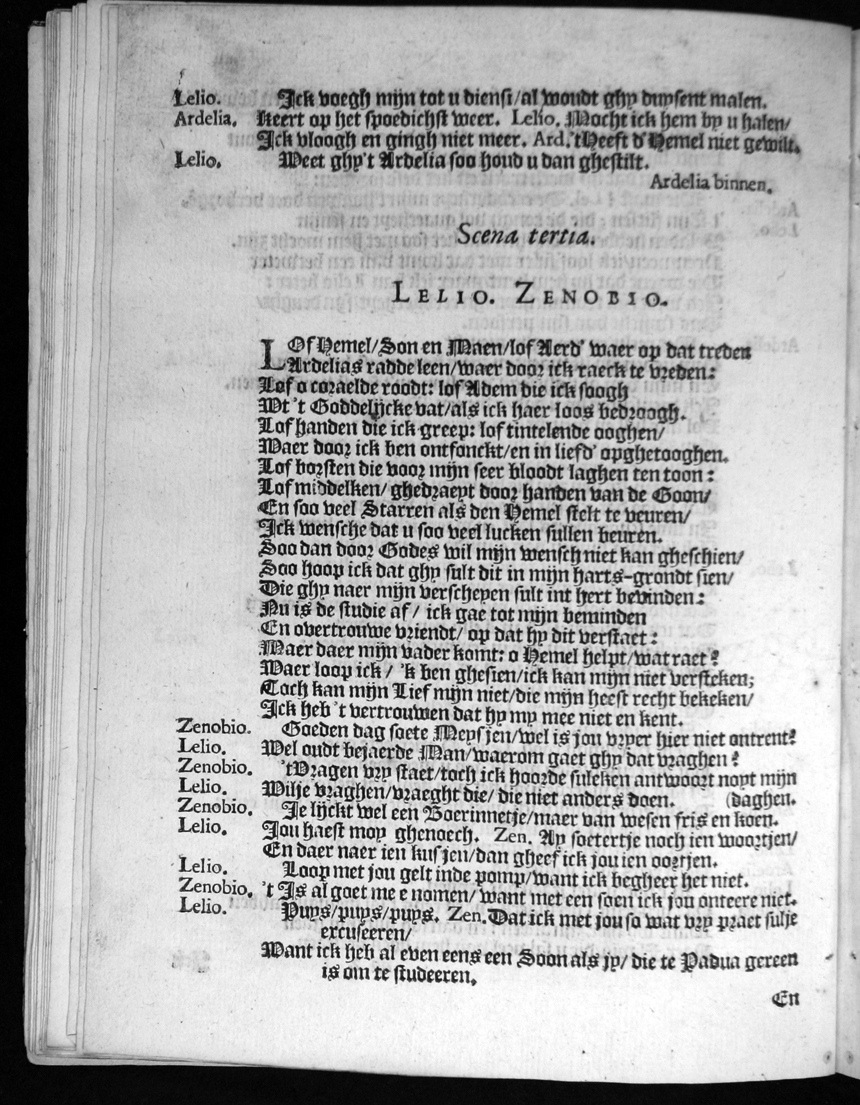 Lelio. Ick voegh mijn tot u dienst/al woudt ghy duysent malen.
Ardelia. Keert op het spoedichst weer. Lelio. Mocht ick hem by u halen/
Ick vloogh en gingh niet meer. Ard.'tHeeft d'Hemel niet gewilt.
Lelio. Weet ghy't Ardelia soo houd u dan ghestilt.
Ardelia binnen.
Scena tertia.
LELIO. ZENOBIO.
LOf Hemel/Son en Maen/lof Aerd' waer op dat treden
Ardelias radde leen/waer door ick raeck te vreden:
Lof o coraelde roodt: lof Adem die ick soogh
Wt 't Goddelijcke vat/als ick haer loos bedroogh.
Lof handen die ick greep: lof tintelende ooghen/
Waer door ick ben ontfonckt/en in liefd' opghetooghen.
Lof borsten die voor mijn seer bloodt laghen ten toon:
Lof middelken/ ghedraeyt door handen van de Goon/
En soo veel Starren als den Hemel stelt te veuren/
Ick wensche dat u soo veel lucken sullen beuren.
Soo dan door Godes wil mijn wensch niet kan gheschien/
Soo hoop ick dat ghy sult dit in mijn harts-grondt sien/
Die ghy naer mijn verscheyen sult int hert bevinden:
Nu is de studie af/ ick gae tot mijn beminden
En overtrouwe vriendt/ op dat hy dit verstaet:
Maer daer mijn vader komt: o Hemel helpt/wat raet?
Waer loop ick/ 'k ben ghesien/ick kan mijn niet versteken;
Toch kan mijn Lief mijn niet/die mijn heeft recht bekeken/
Ick heb 't vertrouwen dat hy my mee niet en kent.
Zenobio. Goeden dag soete Meysjen/wel is jou vryer hier niet ontrent?
Lelio. Wel oudt bejaerde Man/waerom gaet ghy dat vraghen?
Zenobio. 'tVragen vry staet/toch ick hoorde suleken antwoort noyt mijn
Lelio. Wilje vraghen/vraeght die/ die niet anders doen. (daghen.
Zenobio. Je lijckt wel een Boerinnetje/maer van wesen fris en koen.
Lelio. Jou haest moy ghenoech. Zen. Ay soetertje noch ien woortjen/
En daer naer ien kusjen/dan gheef ick jou ien oortjen.
Lelio. Loop met jou gelt inde pomp/want ick begheer het niet.
Zenobio. 't Is al goet me e nomen/ want met een soen ick jou onteere niet.
Lelio. Puys/puys/puys. Zen. Dat ick met jou so wat vry praet sulje
excuseeren/
Want ick heb al even eens een Soon als jy/ die te Padua gereen
is om te studeeren.
En